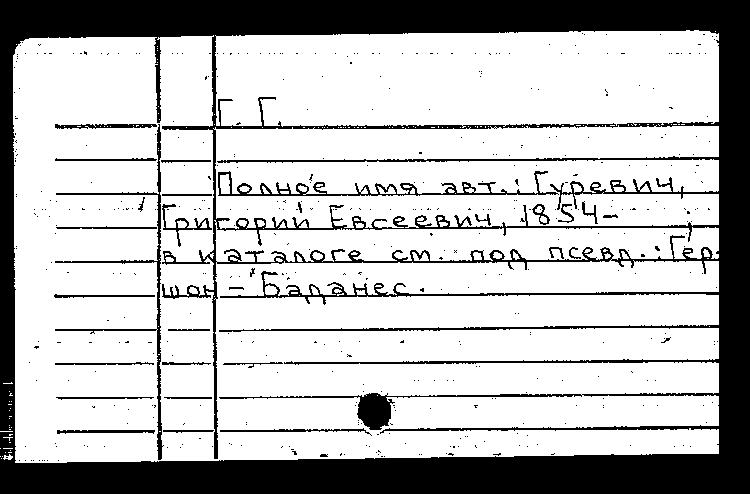 Г. Г.
Полное имя авт.: Гуревич,
Григорий Евсеевич, 1854- ;
в каталоге см. под псевд.: Гер-
шон - Баданес.